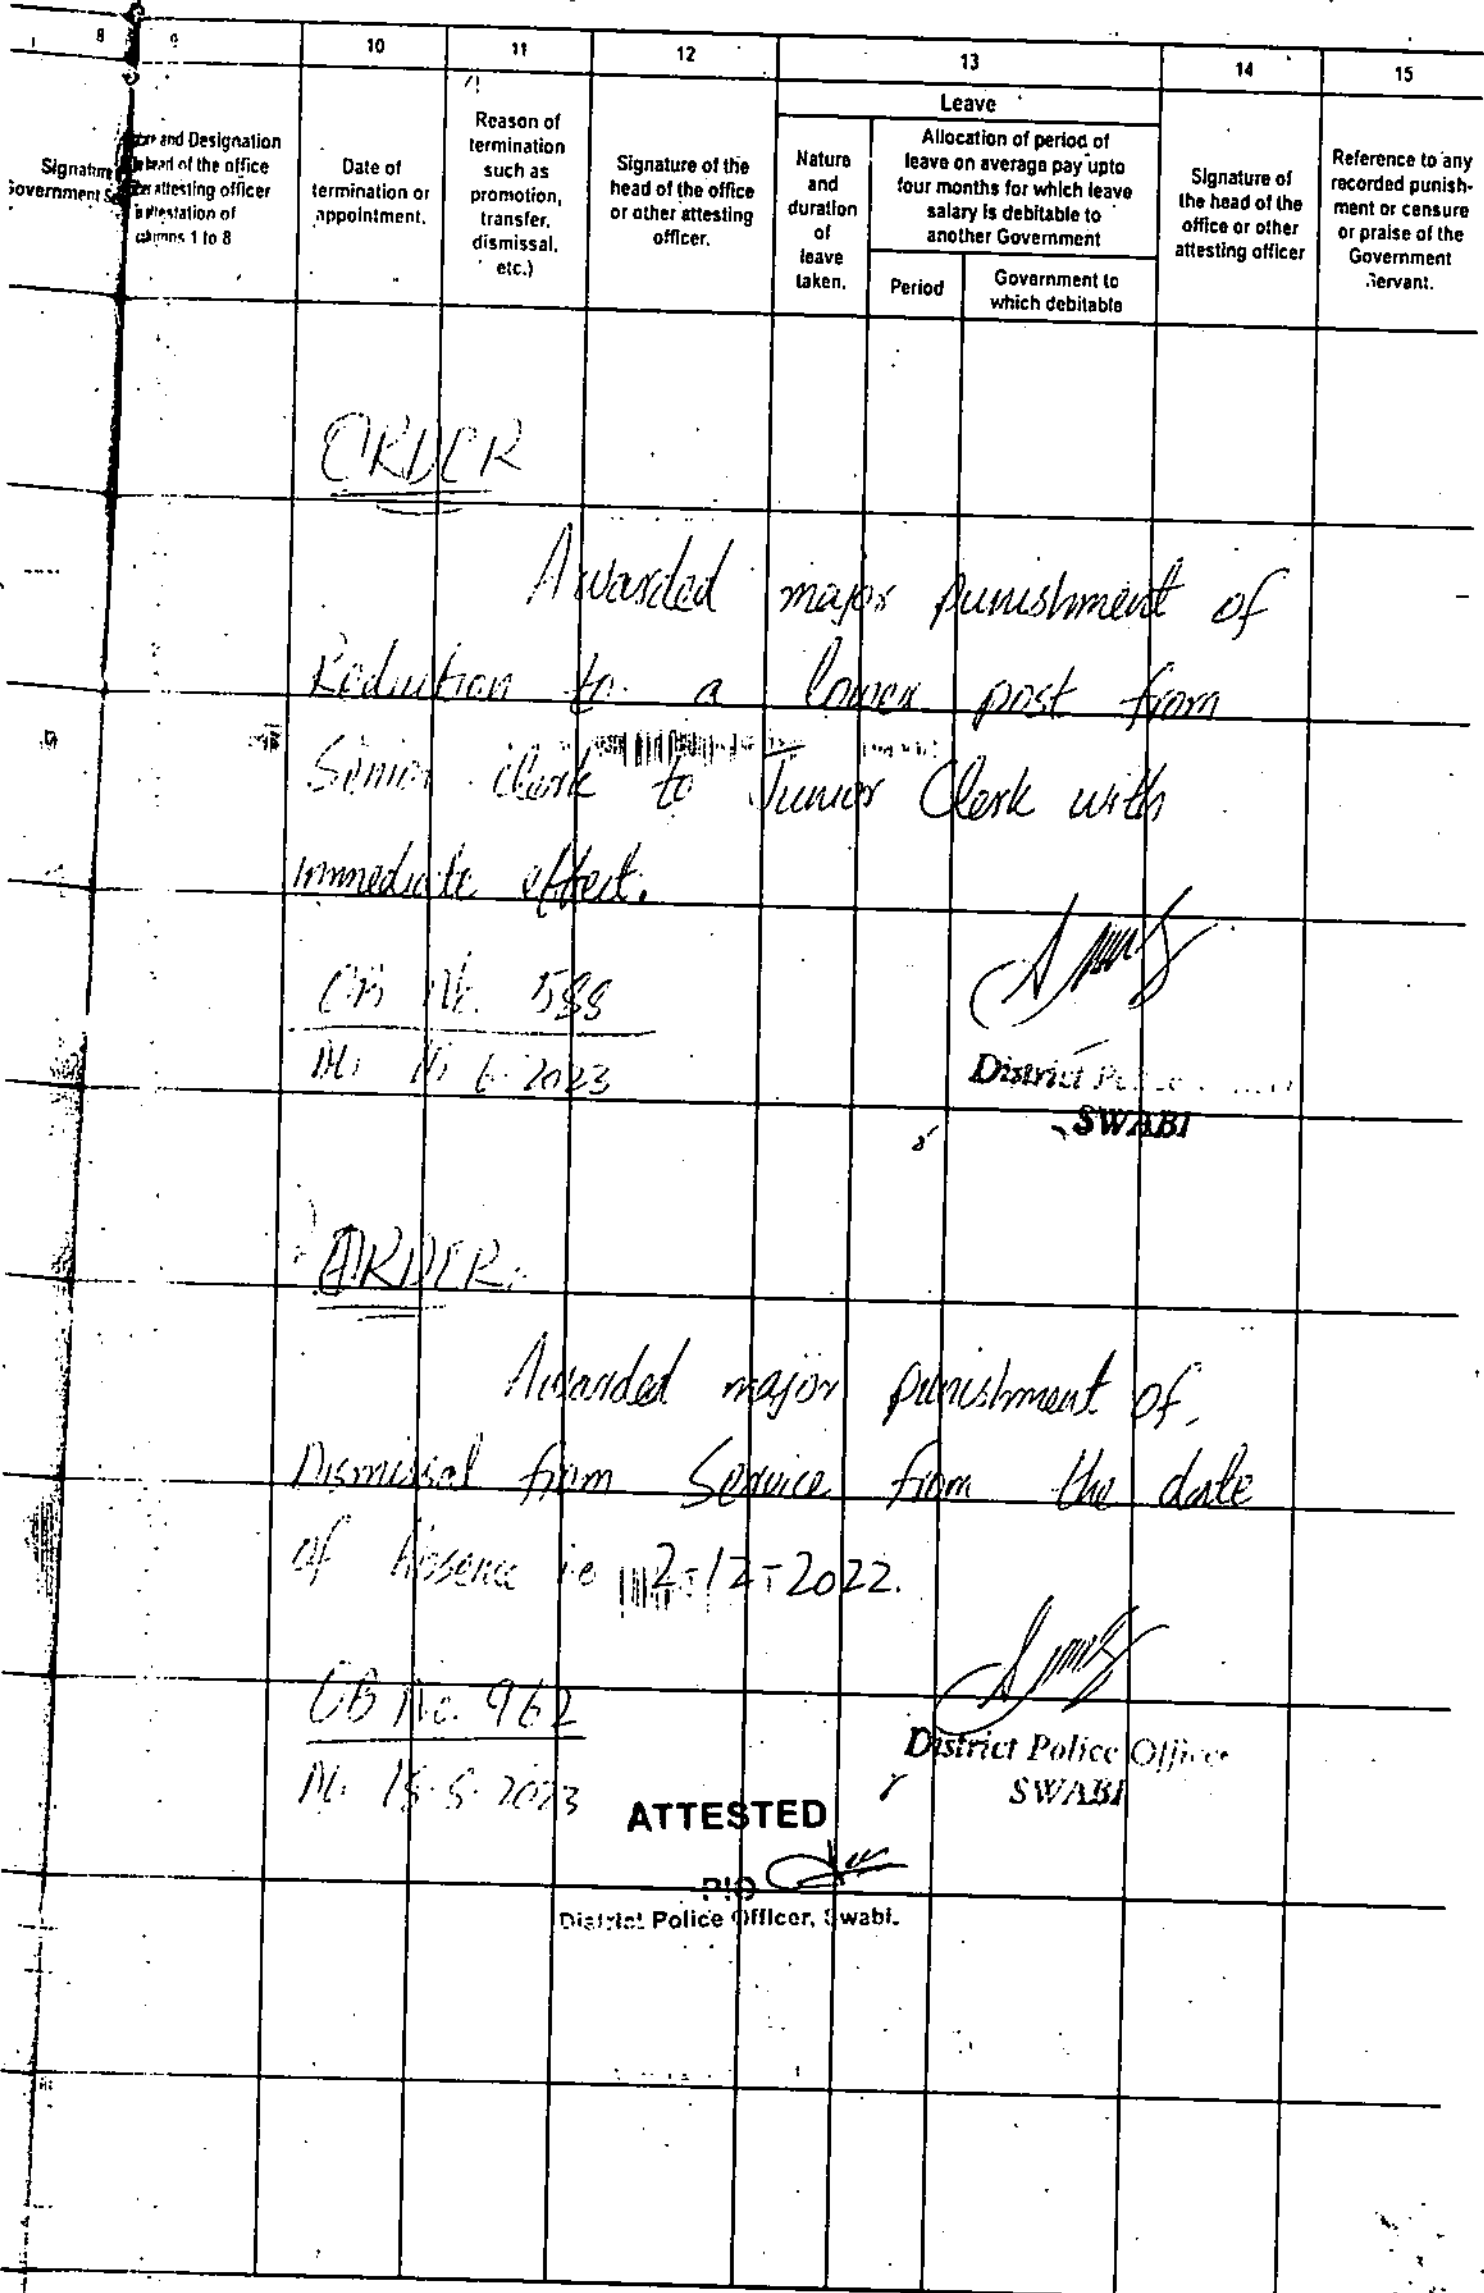 8
9
10
11
12
13
14
15
Signature
Government Se
and Designation
head of the office
attesting officer
attestation of
columns 1 to 8
Date of
termination or
appointment.
Reason of
termination
such as
promotion,
transfer,
dismissal,
etc.)
Signature of the
head of the office
or other attesting
officer.
Leave
Nature
and
duration
of
leave
taken.
Allocation of period of
leave on average pay upto
four months for which leave
salary is debitable to
another Government
Period
Government to
which debitable
Signature of
the head of the
office or other
attesting officer
Reference to any
recorded punish-
ment or censure
or praise of the
Government
Servant.
ORDER
Awarded major punishment of
Reduction to a lower post from
Senior Clerk to Junior Clerk with
immediate effect.
OB No. 588
6-2023
District
SWABI
ORDER
Awarded major punishment of
Dismissal from Service from the date
of Absence i.e 2-12-2022.
OB No. 962
2023
District Police Officer
SWABI
ATTESTED
PIO
District Police Officer, Swabi.